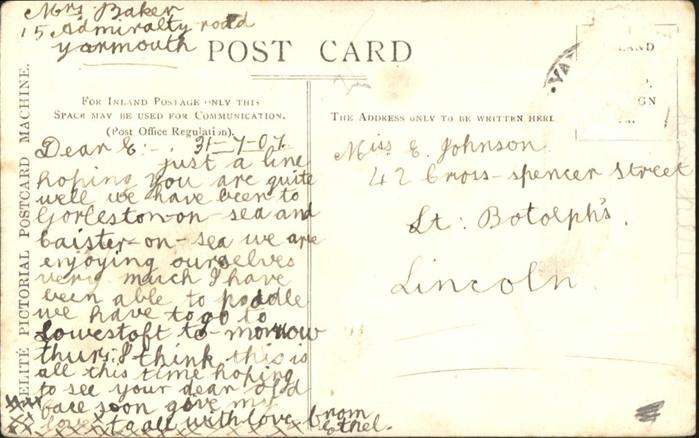 Mrs Baker
15 Admiralty road
Yarmouth
POST CARD
ELITE PICTORIAL POSTCARD MACHINE.
FOR INLAND POSTAGE ONLY THIS
SPACE MAY BE USED FOR COMMUNICATION.
(Post Office Regulation).
Dear E:- 31-7-07.
just a line
hoping you are quite
well we have been to
Gorleston-on-sea and
Caister-on-sea we are
enjoying ourselves
very much I have
been able to paddle
we have to go to
Lowestoft to-morrow
thur: I think this is
all this time hoping
to see your dear old
face soon give my
love to all with love from
Ethel.
THE ADDRESS ONLY TO BE WRITTEN HERE
Miss E. Johnson
42 Cross-spencer street
St: Botolph's.
Lincoln.